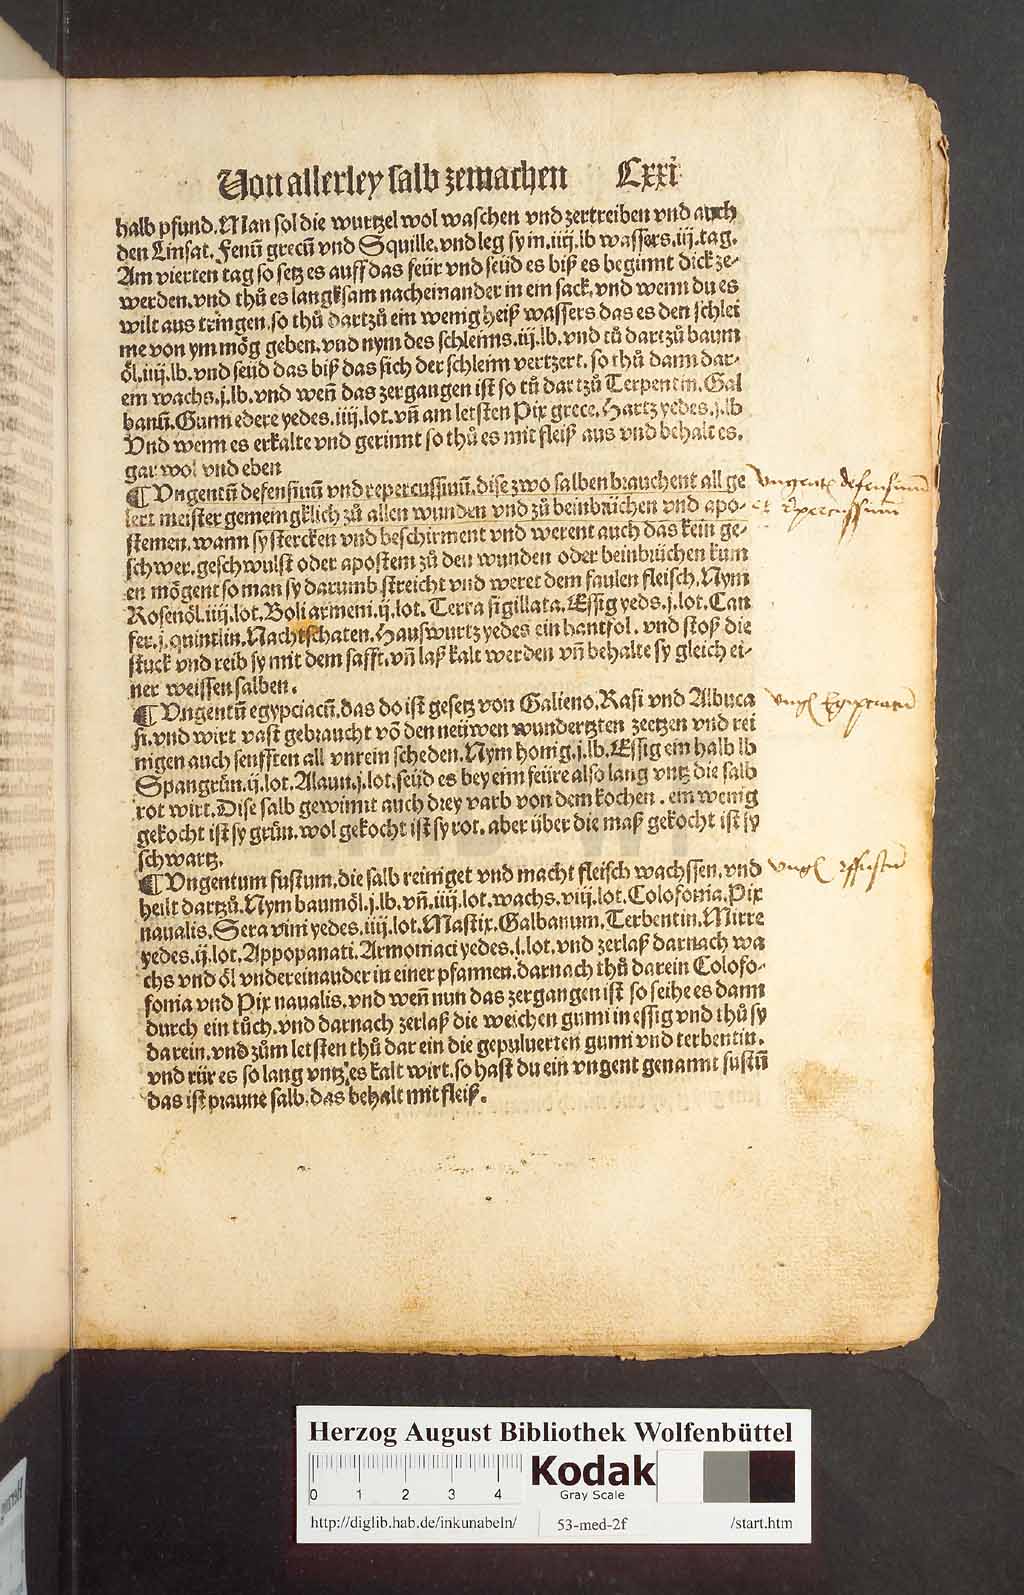 Von allerley salb zemachen Lxxi
halb pfund. Man sol die wurtzel wol waschen vnd zertreiben vnd auch
den Linsat. Fenū grecū vnd Squille. vnd leg sy in .iiij. lb wassers .iij. tag.
Am vierten tag so setz es auff das feür vnd seüd es biß es beginnt dick ze-
werden. vnd thů es langksam nacheinander in ein sack. vnd wenn du es
wilt aus tringen. so thů dartzů ein wenig heiß wassers das es den schlei
me von ym mög geben. vnd nym des schleims .iij. lb. vnd tů dartzů baum
öl .iiij. lb. vnd seüd das biß das sich der schleim vertzert. so thů dann dar-
ein wachs .j. lb. vnd weñ das zergangen ist so tů dartzů Terpentin. Gal
banū. Gunn edere yedes .iiij. lot. vñ am letsten Pix grece. Hartz yedes .j. lb
Vnd wenn es erkalte vnd gerinnt so thů es mit fleiß aus vnd behalt es.
gar wol vnd eben
¶ Vngentū defensiuū vnd repercussiuū. dise zwo salben brauchent all ge
lert meister gemeingklich zů allen wunden vnd zů beinbrüchen vnd apo-
stemen. wann sy stercken vnd beschirment vnd werent auch das kein ge-
schwer. geschwulst oder apostem zů den wunden oder beinbrüchen kum
en mögent so man sy darumb streicht vnd weret dem faulen fleisch. Nym
Rosenöl .iiij. lot. Boli armeni .ij. lot. Terra sigillata. Essig yeds .j. lot. Can
fer .j. quintlin. Nachtschaten. Hauswurtz yedes ein hantfol. vnd stoß die
stuck vnd reib sy mit dem safft. vñ laß kalt werden vñ behalte sy gleich ei-
ner weissen salben.
¶ Vngentū egypciacū. das do ist gesetz von Galieno. Rasi vnd Albuca
si. vnd wirt vast gebraucht vō den neüwen wundertzten zeetzen vnd rei
nigen auch senfften all vnrein scheden. Nym honig .j. lb. Essig ein halb lb
Spangrün .ij. lot. Alaun .j. lot. seüd es bey eim feüre also lang vntz die salb
rot wirt. Dise salb gewinnt auch drey varb von dem kochen. ein wenig
gekocht ist sy grün. wol gekocht ist sy rot. aber über die maß gekocht ist sy
schwartz.
¶ Vngentum fustum. die salb reiniget vnd macht fleisch wachssen. vnd
heilt dartzů. Nym baumöl .j. lb. vñ .iiij. lot. wachs .viij. lot. Colofonia. Pix
naualis. Sera vini yedes .iiij. lot. Mastix. Galbanum. Terbentin. Mirre
yedes .ij. lot. Appopanati. Armoniaci yedes .j. lot. vnd zerlaß darnach wa
chs vnd öl vndereinander in einer pfannen. darnach thů darein Colofo-
fonia vnd Pix naualis. vnd weñ nun das zergangen ist so seihe es dann
durch ein tůch. vnd darnach zerlaß die weichen gumi in essig vnd thů sy
darein. vnd zům letsten thů dar ein die gepuluerten gumi vnd terbentin.
vnd rür es so lang vntz es kalt wirt. so hast du ein vngent genannt fustū
das ist praune salb. das behalt mit fleiß.
vngentū defensiuum
et repercussiuum
vngt Egiptiacū
Herzog August Bibliothek Wolfenbüttel
0 1 2 3 4
Kodak
Gray Scale
http://diglib.hab.de/inkunabeln/ 53-med-2f /start.htm